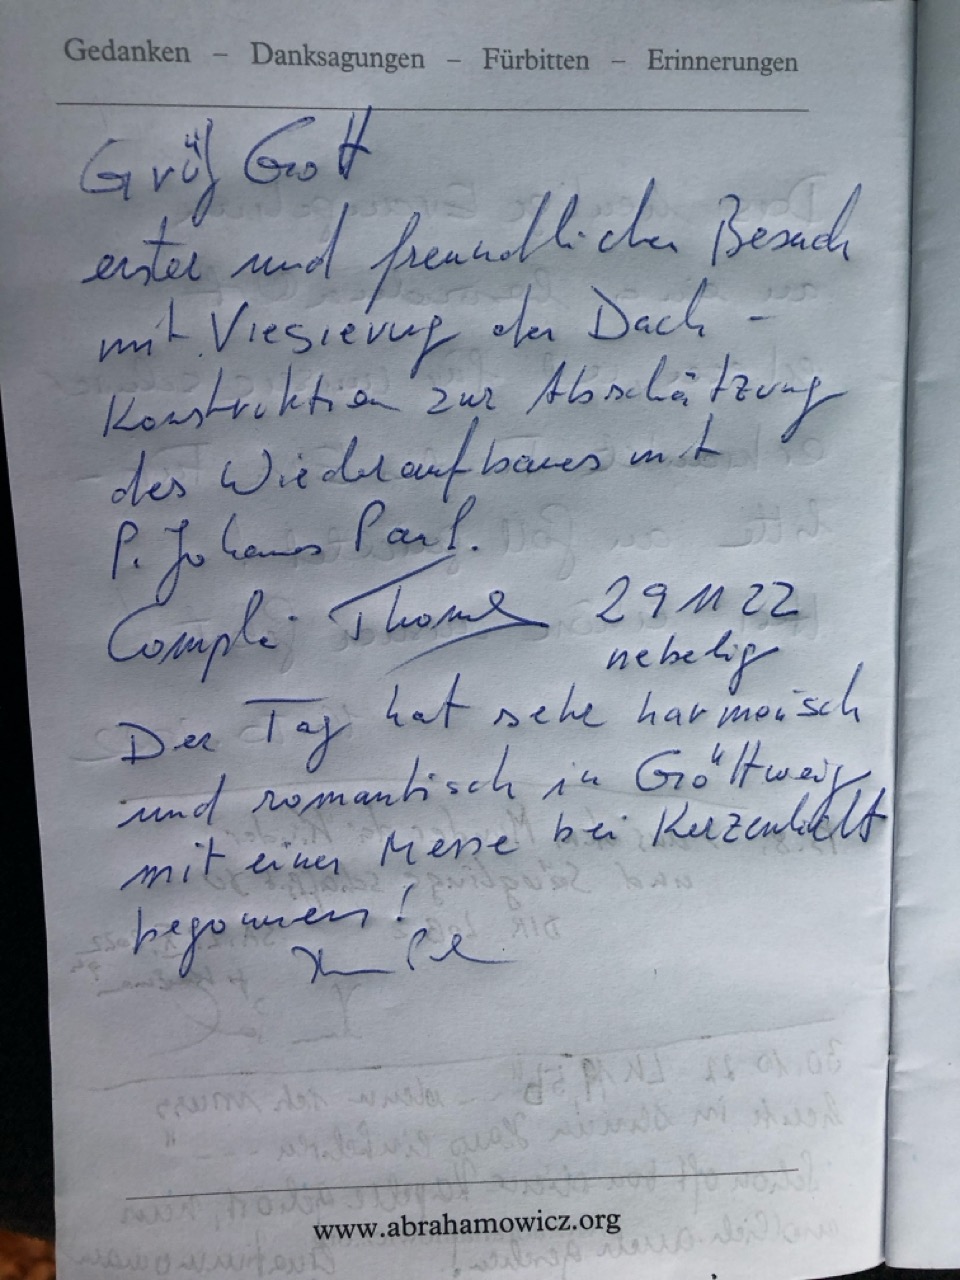 Gedanken – Danksagungen – Fürbitten – Erinnerungen
Grüß Gott
erster und freundlicher Besuch
mit Viesierung der Dach-
Konstruktion zur Abschätzung
des Wiederaufbaues mit
P. Johannes Paul.
Thomas 29 11 22
nebelig
Der Tag hat sehr harmonisch
und romantisch in Göttweig
mit einer Messe bei Kerzenlicht
begonnen!
www.abrahamowicz.org